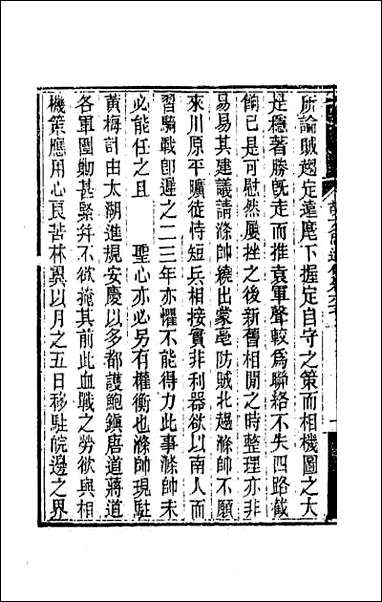 所論賊趨定遠麾下握定自守之策而相機圖之大
是穩著勝既走而推袁軍聲較爲聯絡不失四路截
餉已是可慰然屢挫之後新舊相間之時整理亦非
易易其建議請滌帥繞出蒙亳防賊北趨滌帥不願
來川原平曠徒恃短兵相接實非利器欲以南人而
習騎戰卽遲之二三年亦懼不能得力此事滌帥未
必能任之且　聖心亦必另有權衡也滌帥現駐
黃梅計由太湖進規安慶以多都護鮑鎮唐道蔣道
各軍圍勦甚緊幷不欲掩其前此血戰之勞欲與相
機策應用心良苦林翼以月之五日移駐皖邊之界